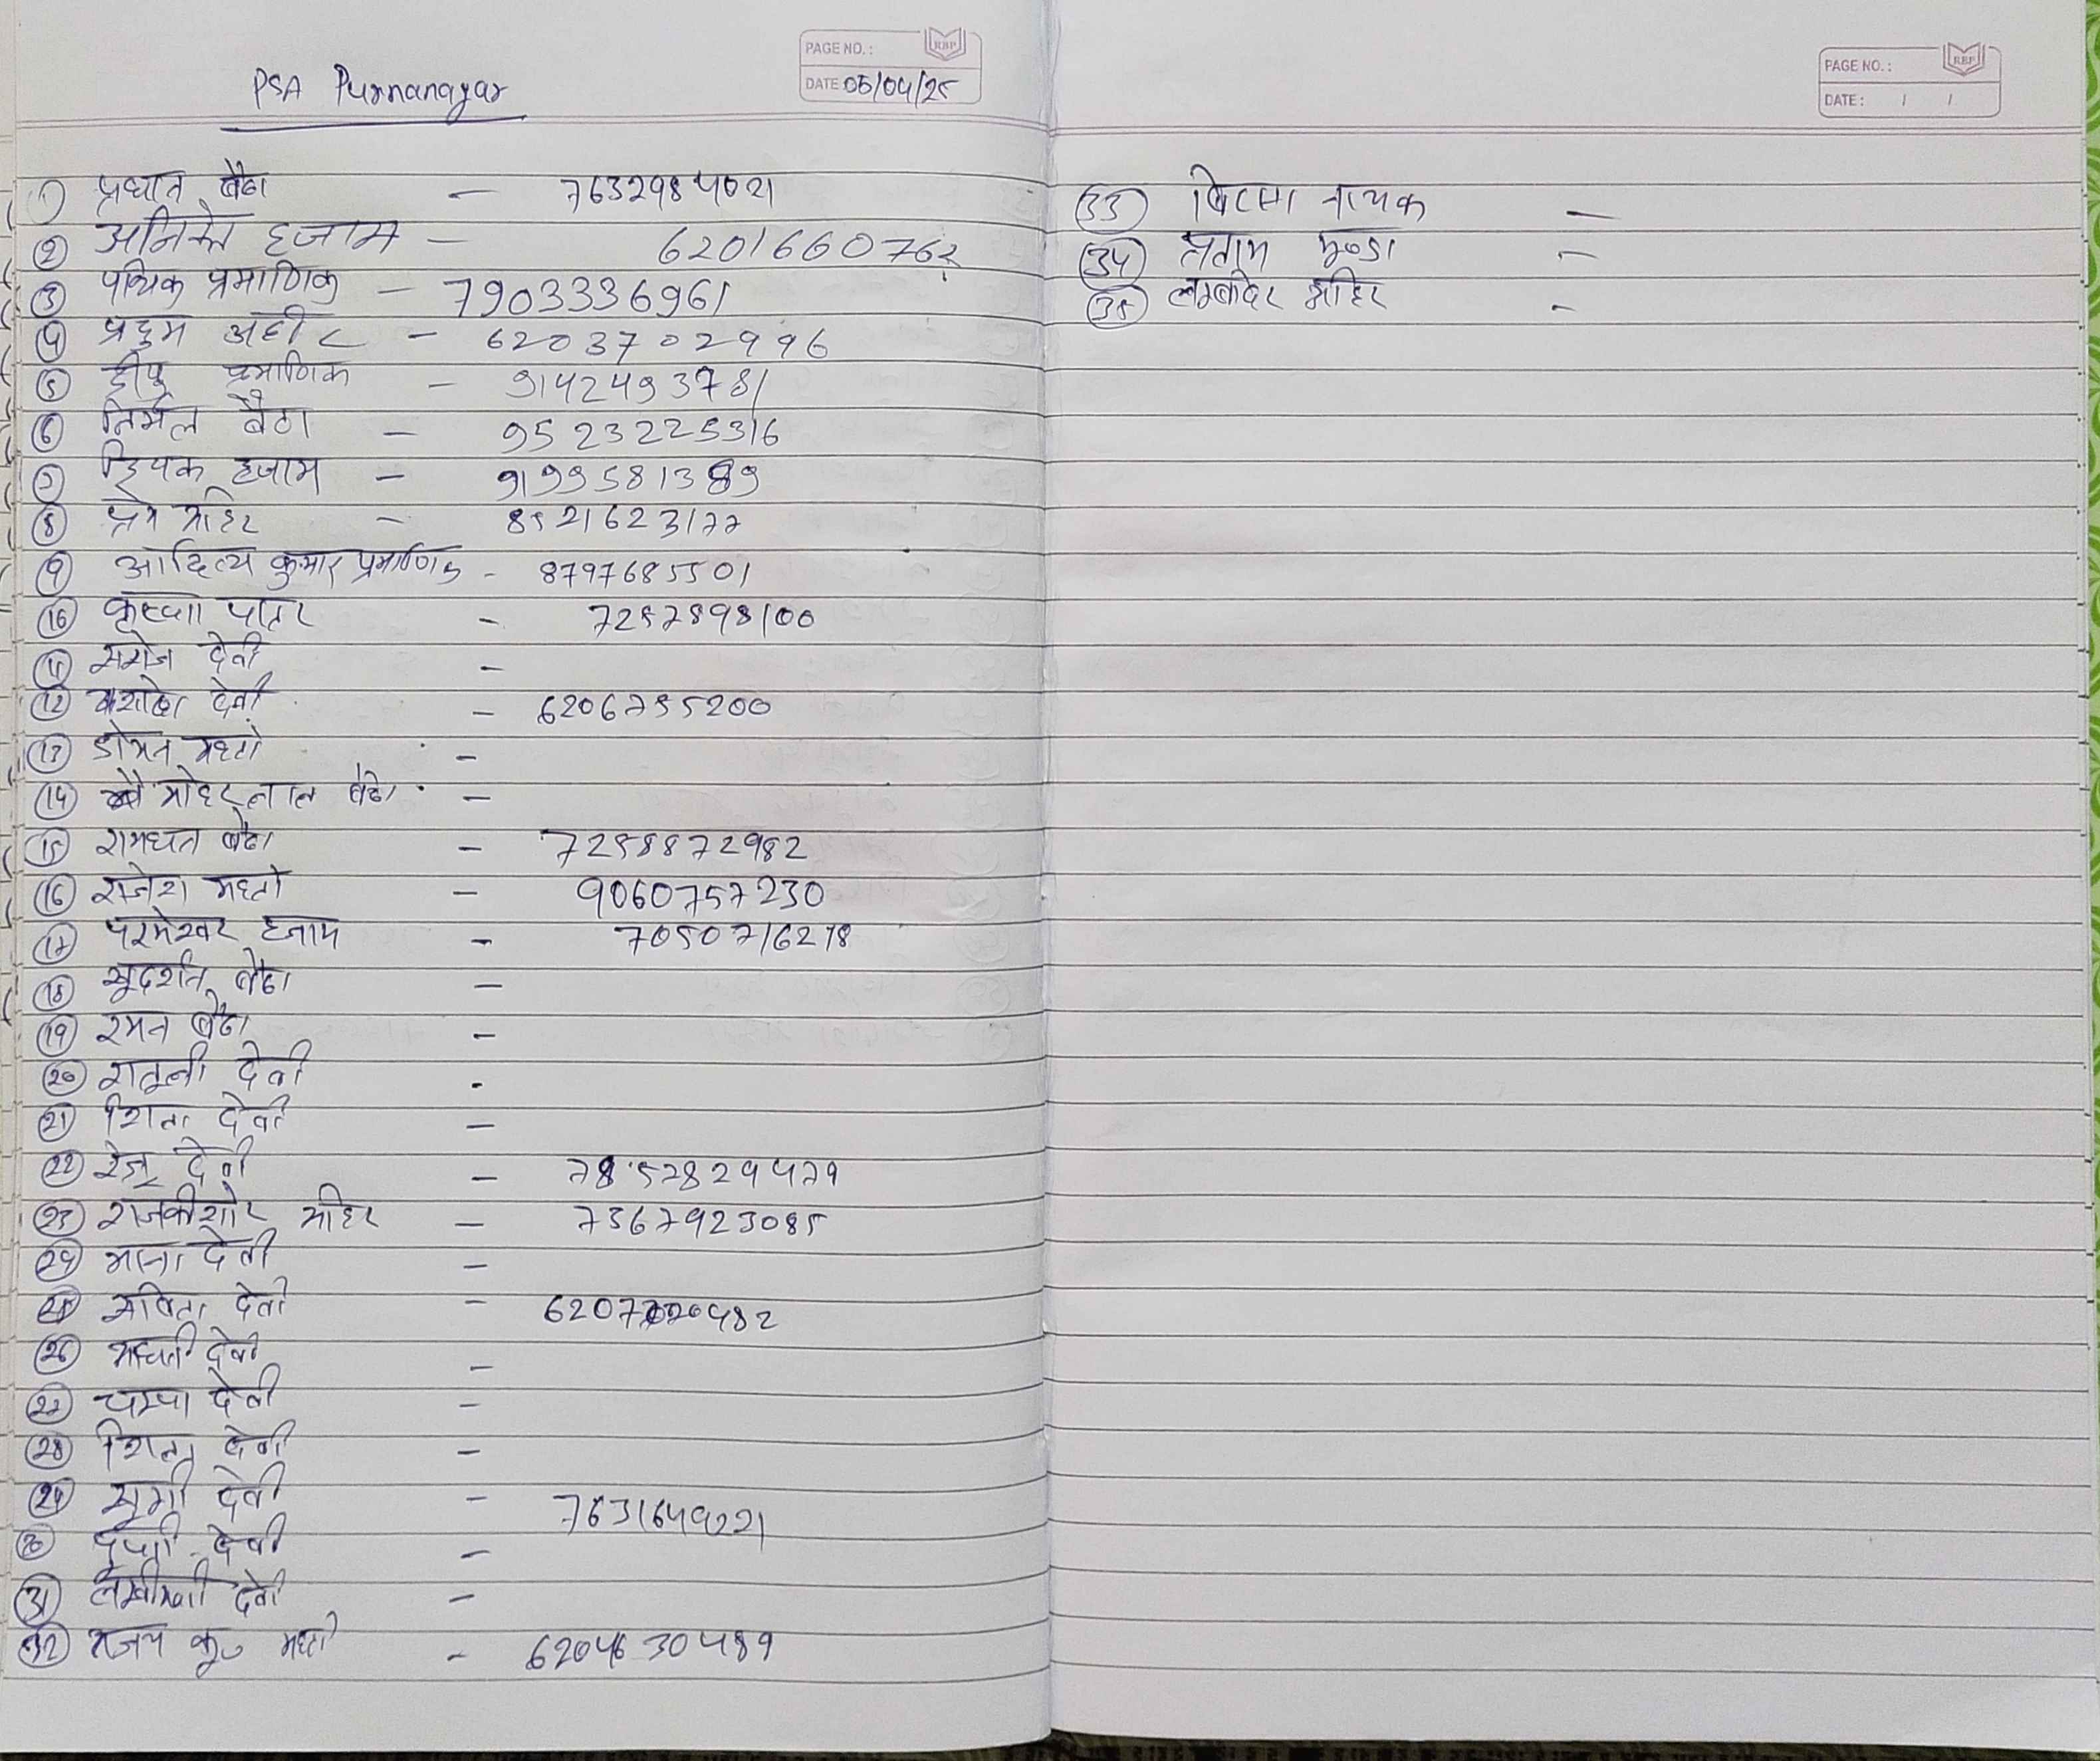 PSA Purnanagar
PAGE NO. : RBP
DATE 05/04/25
① प्रधान बैठा — 7632984021
② अनिकेत हजाम — 6201660762
③ पथिक प्रमाणिक — 7903336961
④ प्रदुम अहीर — 6203702996
⑤ दीपु प्रमाणिक — 9142493781
⑥ निर्मल बैठा — 9523225316
⑦ दिपक हजाम — 9199581389
⑧ प्रेम माहिर — 8521623177
⑨ आदित्य कुमार प्रमाणिक - 8797685501
⑩ कृष्णा पातर - 7257898100
⑪ सरोज देवी -
⑫ देवी - 6206755200
⑬ डोमन महतो -
⑭ मोहरलाल बैठा -
⑮ रामधन बैठा - 7258872982
⑯ राजेश महतो - 9060757230
⑰ परमेश्वर हजाम - 7050716278
⑱ सुदर्शन बैठा -
⑲ रमन बैठा -
⑳ देवी -
㉑ रिता देवी -
㉒ रेनू देवी - 7857829479
㉓ राजकीशोर माहिर - 7367923085
㉔ माना देवी -
㉕ सबिता देवी - 6207720482
㉖ देवी -
㉗ चम्पा देवी -
㉘ रिता देवी -
㉙ सुमी देवी - 7631649221
㉚ देवी -
㉛ देवी -
㉜ कु० महतो - 6204630489
PAGE NO. : RBP
DATE : / /
㉝ नायक -
㉞ मुण्डा -
㉟ माहिर -